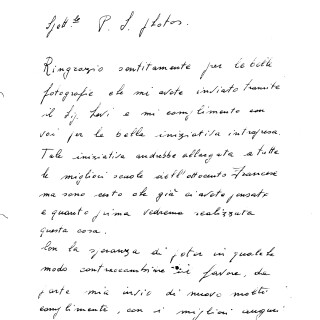 Spett.le P. S. photos.
Ringrazio sentitamente per le belle
fotografie che mi avete inviato tramite
il Sig. Levi e mi complimento con
voi per la bella iniziativa intrapresa.
Tale iniziativa andrebbe allargata a tutte
le migliori scuole dell'ottocento Francese
ma sono certo che già ci avete pensato
e quanto prima vedremo realizzata
questa cosa.
Con la speranza di poter in qualche
modo contraccambiare il favore, da
parte mia invio di nuovo molti
complimenti, con i migliori auguri